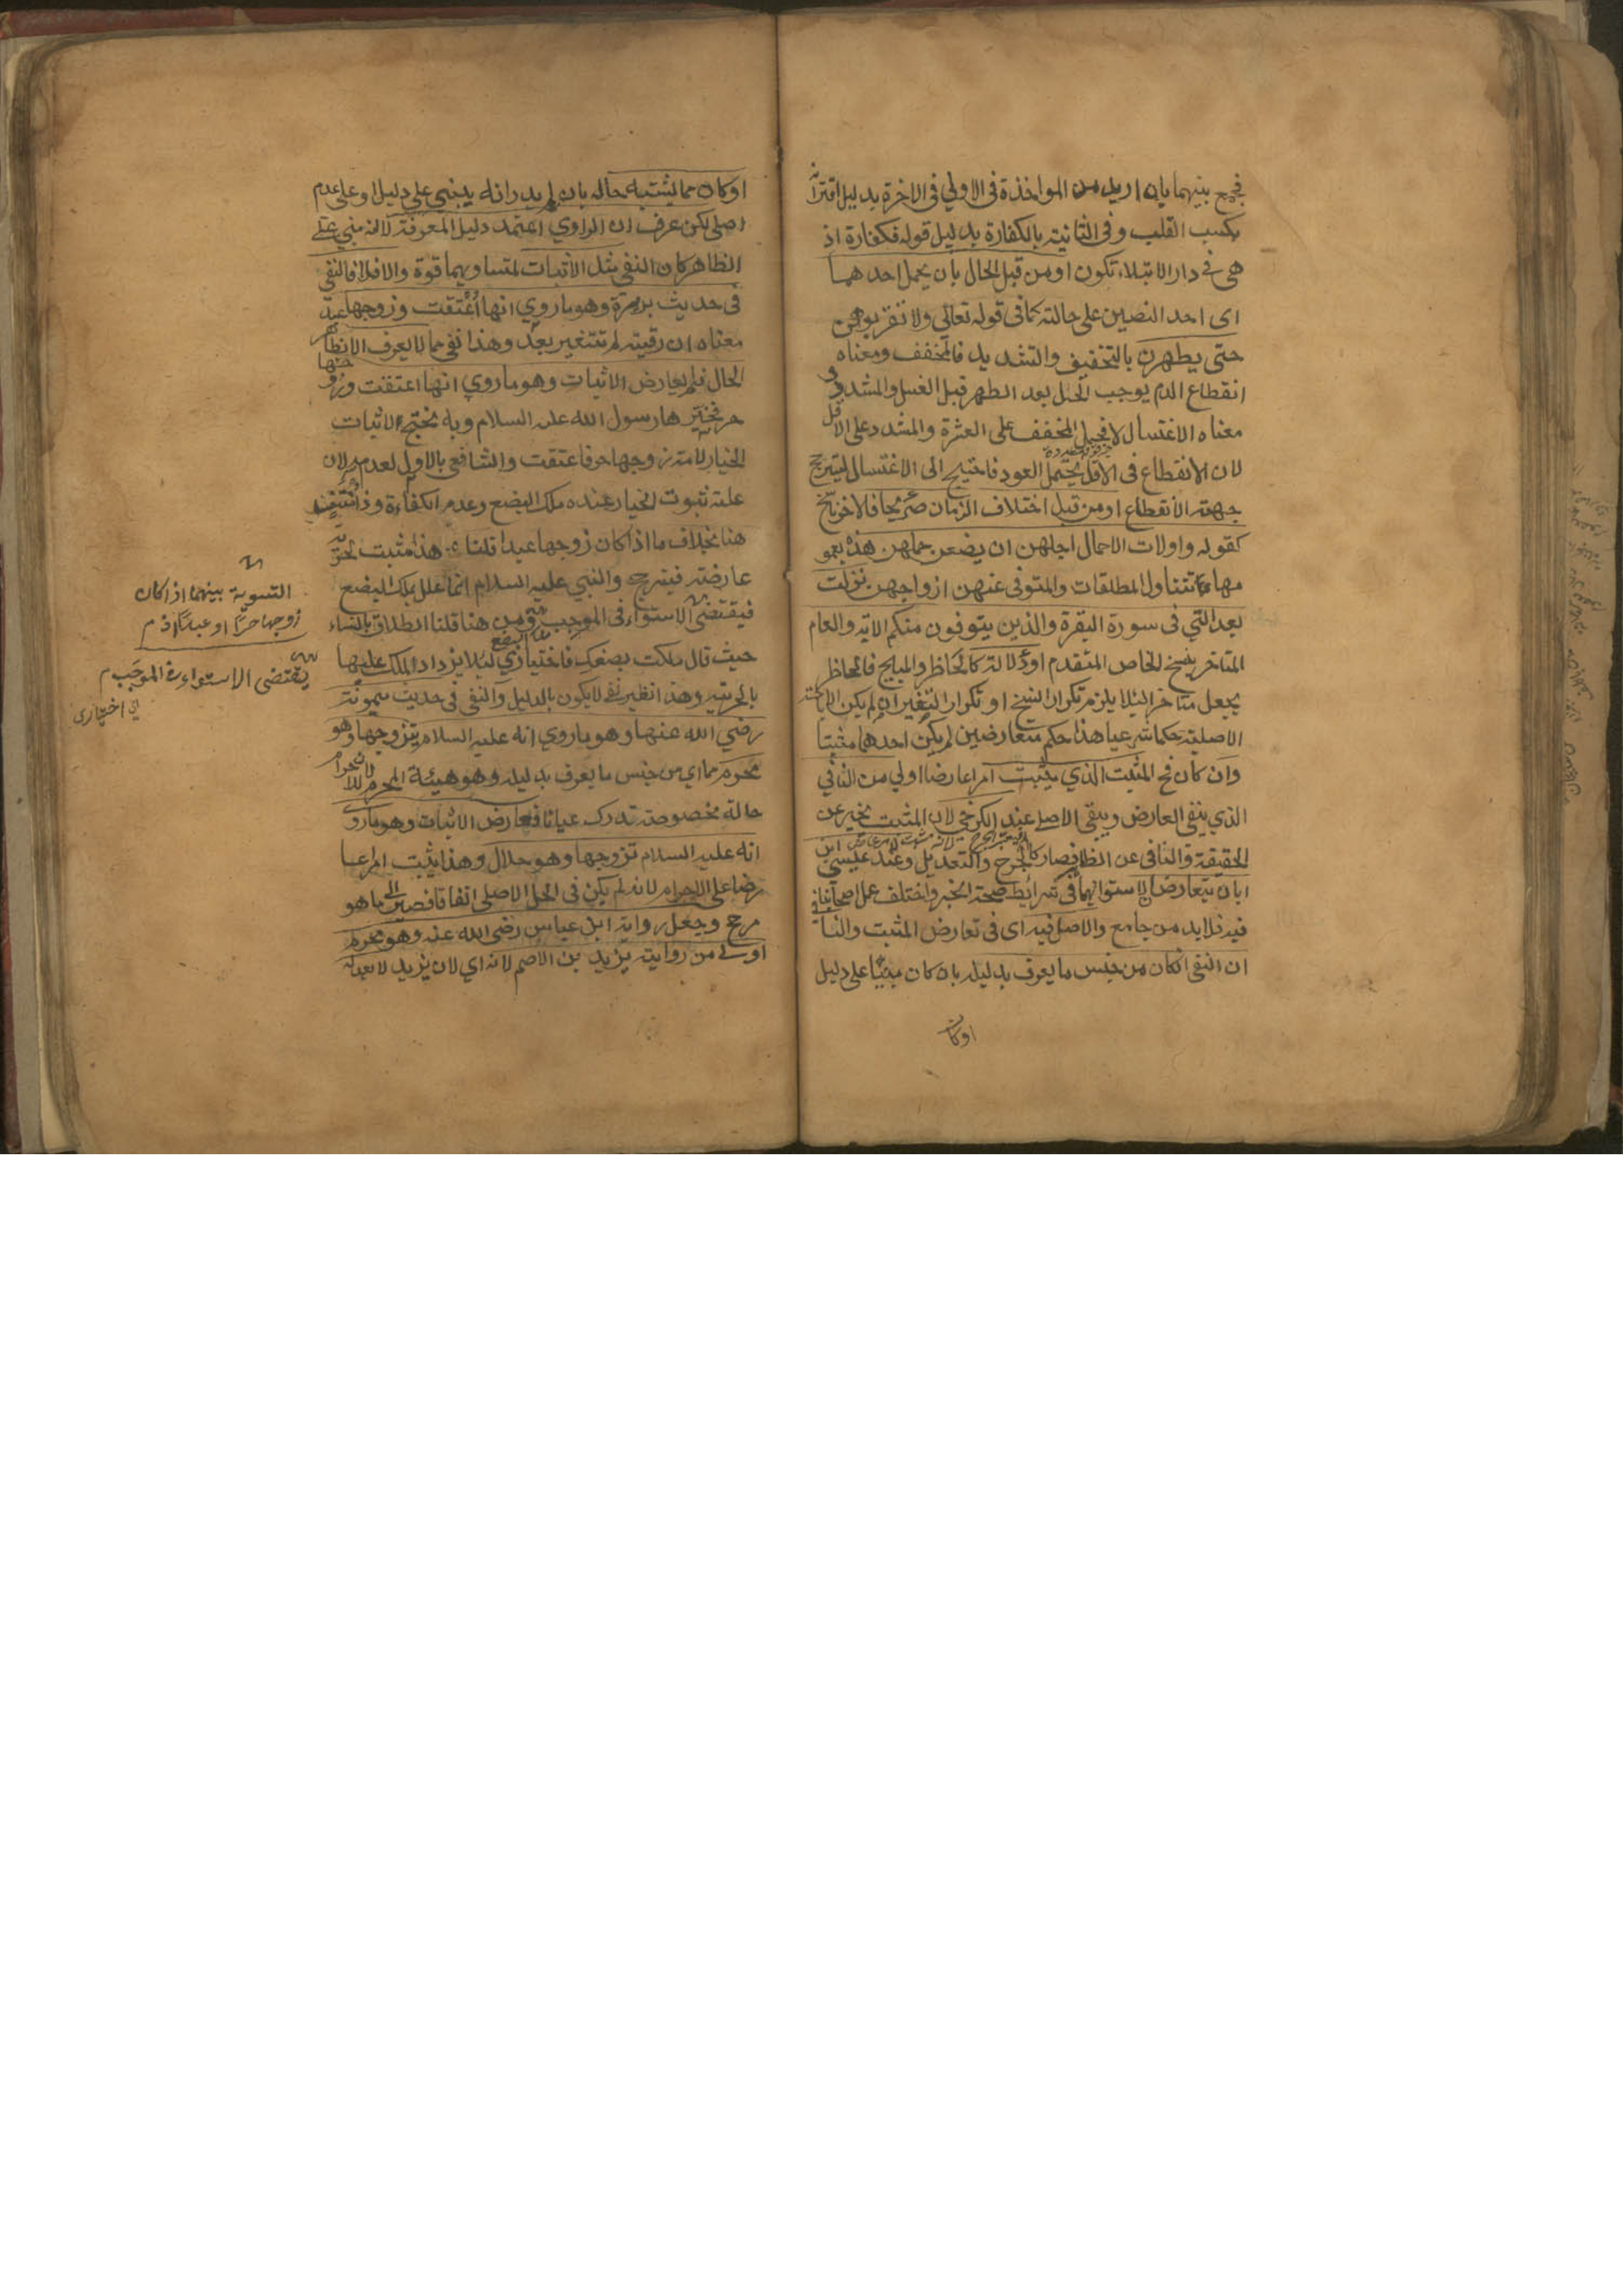 فجمع بينهما بان اريد من المواخذة فى الاولي فى الاخرة بدليل اقترانه
بكسب القلب وفى الثانية بالكفارة بدليل قوله فكفارة اذ
هى فى دار الابتلاء تكون او من قبل الحال بان يحمل احدهما
اى احد النصين على حالة كما فى قوله تعالي ولا تقربوهن
حتى يطهرن بالتخفيف والتشديد فالمخفف ومعناه
انقطاع الدم يوجب الحل بعد الطهر قبل الغسل والمشدد و
معناه الاغتسال لا فيحمل المخفف على العشرة والمشدد على الاقل
لان الانقطاع فى الاقل يحتمل العود فاحتيج الى الاغتسال ليترجح
جهة الانقطاع او من قبل اختلاف الزمان صريحا فالاخر ناسخ
كقوله واولات الاحمال اجلهن ان يضعن حملهن هذه بعمو
مها تتناول المطلقات والمتوفى عنهن ازواجهن نزلت
بعد التي فى سورة البقرة والذين يتوفون منكم الاية والعام
المتاخر ينسخ الخاص المتقدم او دلالة كالحاظر والمبيح فالحاظر
يجعل متاخرا لئلا يلزم تكرار النسخ او تكرار التغير ان لم يكن الاباحة
الاصلية حكما شرعيا هذا حكم متعارضين لم يكن احدهما مثبتا
وان كان فح المثبت الذي يثبت امرا عارضا اولي من النافي
الذي ينفى العارض ويبقى الاصلي عند الكرخي لان المثبت يخبر عن
الحقيقة والنافى عن الظاهر فصار كالجرح والتعديل وعند عيسى ابن
ابان يتعارضان لاستوائهما فى شرائط صحة الخبر واختلف عمل اصحابنا
فيه فلا بد من جامع والاصل فيه اى فى تعارض المثبت والنافي
ان النفى ان كان من جنس ما يعرف بدليله بان كان مبنيا على دليل
اوكان
اوكان مما يشتبه حاله بان لم يدر انه يبنى على دليل او على عدم
اصلي لكن عرف ان الراوي اعتمد دليل المعرفة لا انه مبني على
الظاهر كان النفى مثل الاثبات لتساويهما قوة والا فلا فالنفى
فى حديث بريرة وهو ما روي انها اُعتقت وزوجها عبد
معناه ان رقيته لم تتغير بعد وهذا نفى مما لا يعرف الا بظاهر
الحال فلم يعارض الاثبات وهو ما روي انها اعتقت وزوجها
حر فخيرها رسول الله عليه السلام وبه نحتج الاثبات
الخيار لامة زوجها حر فاعتقت والشافعى بالاول لعدمه لان
علة ثبوت الخيار عنده ملك البضع وعدم الكفاءة وذا منتف
هنا بخلاف ما اذا كان زوجها عبدا قلنا هذا مثبت لحرية
عارضة فيترجح والنبي عليه السلام انما علل بملك البضع
فيقتضى الاستواء فى الموجب ومن هنا قلنا الطلاق بالنساء
حيث قال ملكت بضعك فاختياري لئلا يزداد الملك عليها
بالحرية وهذا نظير نفى لا يكون بالدليل والنفى فى حديث ميمونة
رضي الله عنها وهو ما روي انه عليه السلام تزوجها وهو
محرم مما اى من جنس ما يعرف بدليله وهو هيئة المحرم لان للاحرام
حالة مخصوصة تدرك عيانا فعارض الاثبات وهو ما روى
انه عليه السلام تزوجها وهو حلال وهذا يثبت امرا عا
رضا على الاحرام لانه لم يكن فى الحل الاصلى اتفاقا فصير الى ما هو
مرجح وجعل رواية ابن عباس رضى الله عنه وهو محرم
اولى من رواية يزيد بن الاصم لانه اي لان يزيد لا يعدله
التسوية بينهما اذا كان
زوجها حرًا او عبدًا اذ م
يقتضى الاستواء فى الموجَب م
اي اختيارى